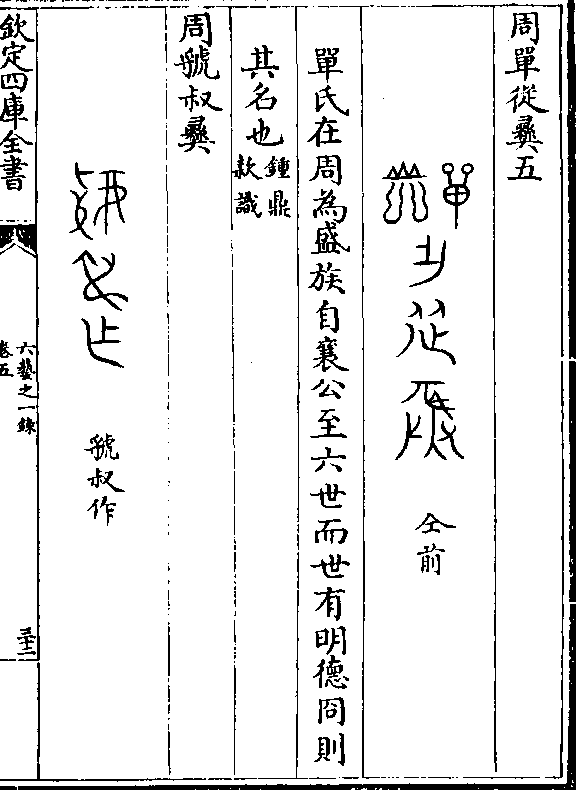 周單從彝五
仝前
單氏在周為盛族自襄公至六世而世有明德冏則
其名也鍾鼎款識
周虢叔彝
虢叔作
欽定四庫全書
六藝之一錄
卷五
三十二